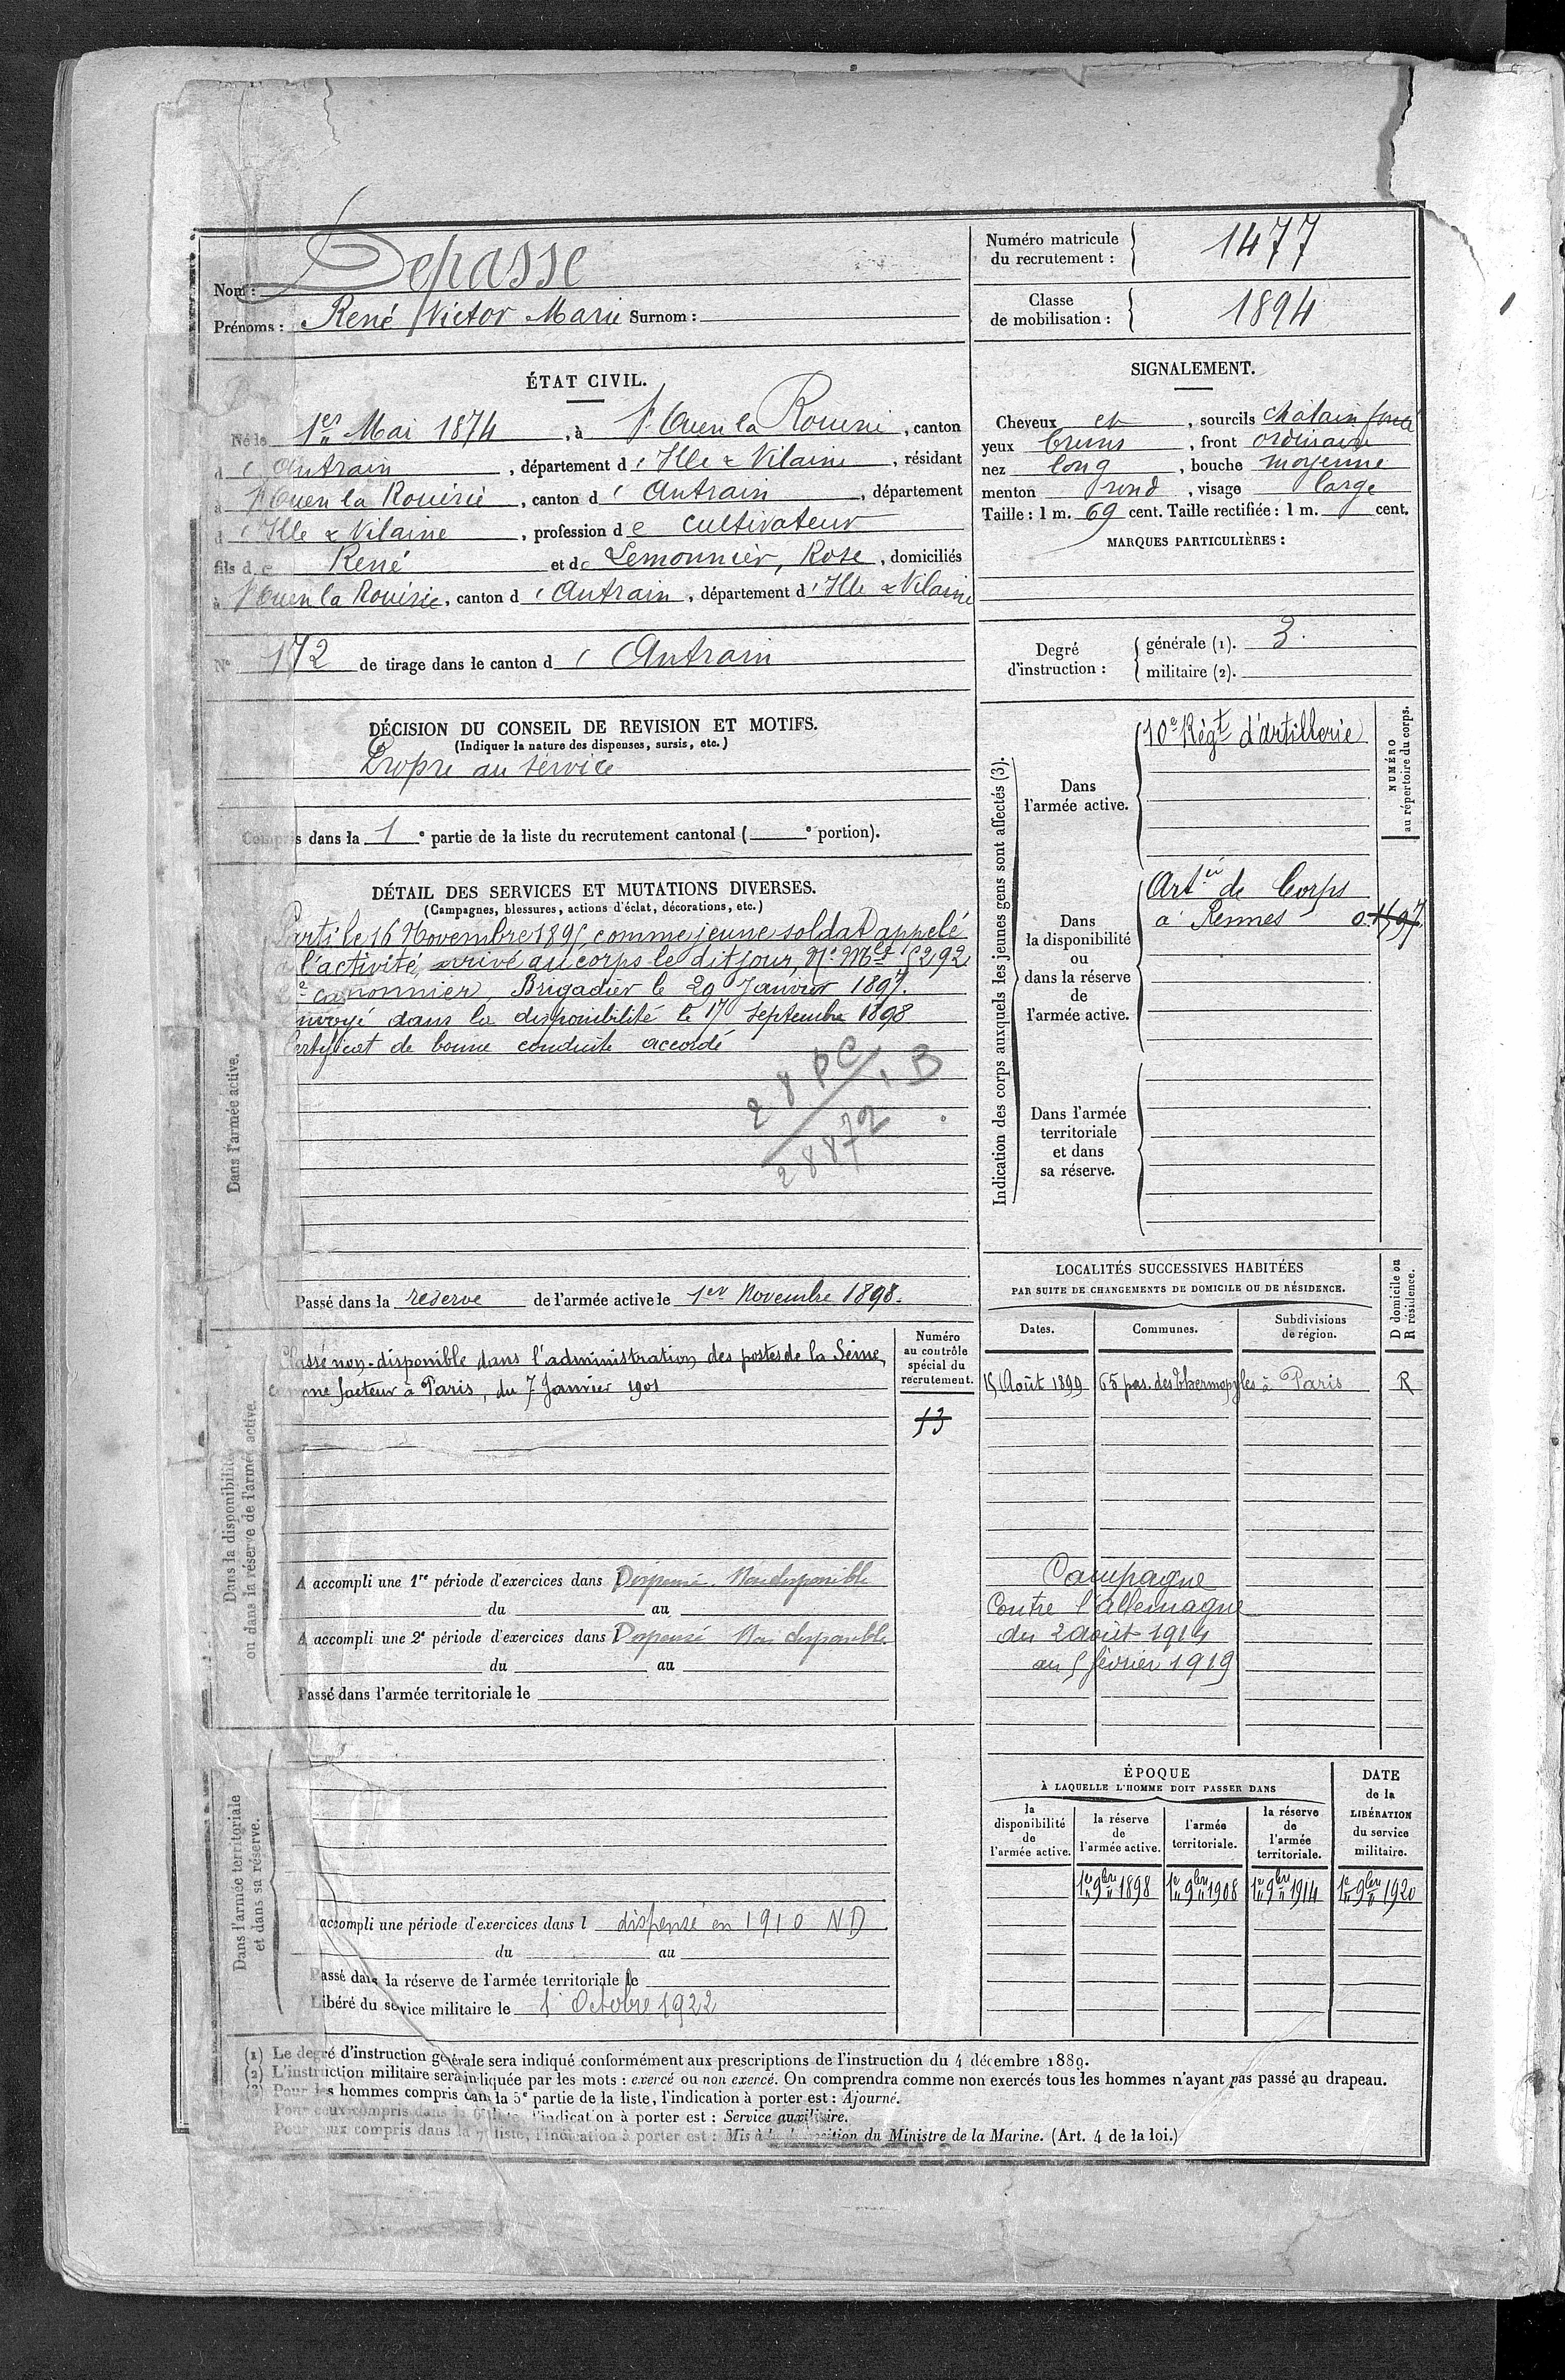 Nom : Depasse
Prénoms : René Victor Marie Surnom :
Numéro matricule du recrutement : 1477
Classe de mobilisation : 1894
ÉTAT CIVIL.
Né le 1er Mai 1874, à St Ouen la Rouërie, canton
d'Antrain, département d'Ille & Vilaine, résidant
à St Ouen la Rouërie, canton d'Antrain, département
d'Ille & Vilaine, profession de cultivateur
fils de René et de Lemonnier, Rose, domiciliés
à St Ouen la Rouërie, canton d'Antrain, département d'Ille & Vilaine
N° 172 de tirage dans le canton d'Antrain
SIGNALEMENT.
Cheveux et, sourcils châtain foncé
yeux bruns, front ordinaire
nez long, bouche moyenne
menton rond, visage large
Taille : 1 m. 69 cent. Taille rectifiée : 1 m. cent.
MARQUES PARTICULIÈRES :
Degré d'instruction : générale (1). 3.
militaire (2).
DÉCISION DU CONSEIL DE REVISION ET MOTIFS.
(Indiquer la nature des dispenses, sursis, etc.)
Propre au service
Compris dans la 1e partie de la liste du recrutement cantonal ( e portion).
DÉTAIL DES SERVICES ET MUTATIONS DIVERSES.
(Campagnes, blessures, actions d'éclat, décorations, etc.)
Parti le 16 Novembre 1895 comme jeune soldat appelé
à l'activité, arrivé au corps le dit jour, N° Mle 5292
2e canonnier, Brigadier le 29 Janvier 1897.
Envoyé dans la disponibilité le 17 Septembre 1898
Certificat de bonne conduite accordé
28872
Dans l'armée active.
Passé dans la réserve de l'armée active le 1er Novembre 1898.
Indication des corps auxquels les jeunes gens sont affectés (3).
NUMÉRO au répertoire du corps.
Dans l'armée active.
10e Régt d'artillerie
Dans la disponibilité ou dans la réserve de l'armée active.
Artie de Corps
à Rennes
Dans l'armée territoriale et dans sa réserve.
Dans la disponibilité ou dans la réserve de l'armée active.
Numéro au contrôle spécial du recrutement.
13
Classé non-disponible dans l'administration des postes de la Seine,
comme facteur à Paris, du 7 Janvier 1901
A accompli une 1re période d'exercices dans l Dispensé. Non disponible
du au
A accompli une 2e période d'exercices dans l Dispensé Non disponible
du au
Passé dans l'armée territoriale le
LOCALITÉS SUCCESSIVES HABITÉES
PAR SUITE DE CHANGEMENTS DE DOMICILE OU DE RÉSIDENCE.
Dates. Communes. Subdivisions de région. D domicile ou R résidence.
15 Août 1899 65 pas. des Thermopyles à Paris R
Campagne
Contre l'allemagne
du 2 août 1914
au 5 février 1919
Dans l'armée territoriale et dans sa réserve.
A accompli une période d'exercices dans l dispensé en 1910 ND
du au
Passé dans la réserve de l'armée territoriale le
Libéré du service militaire le 1r Octobre 1922
ÉPOQUE
À LAQUELLE L'HOMME DOIT PASSER DANS
la disponibilité de l'armée active.
la réserve de l'armée active.
l'armée territoriale.
la réserve de l'armée territoriale.
DATE de la LIBÉRATION du service militaire.
1er 9bre 1898 1er 9bre 1908 1er 9bre 1914 1er 9bre 1920
(1) Le degré d'instruction générale sera indiqué conformément aux prescriptions de l'instruction du 4 décembre 1889.
(2) L'instruction militaire sera indiquée par les mots : exercé ou non exercé. On comprendra comme non exercés tous les hommes n'ayant pas passé au drapeau.
(3) Pour les hommes compris dans la 5e partie de la liste, l'indication à porter est : Ajourné.
Pour ceux compris dans la 6e liste, l'indication à porter est : Service auxiliaire.
Pour ceux compris dans la 7e liste, l'indication à porter est : Mis à la disposition du Ministre de la Marine. (Art. 4 de la loi.)